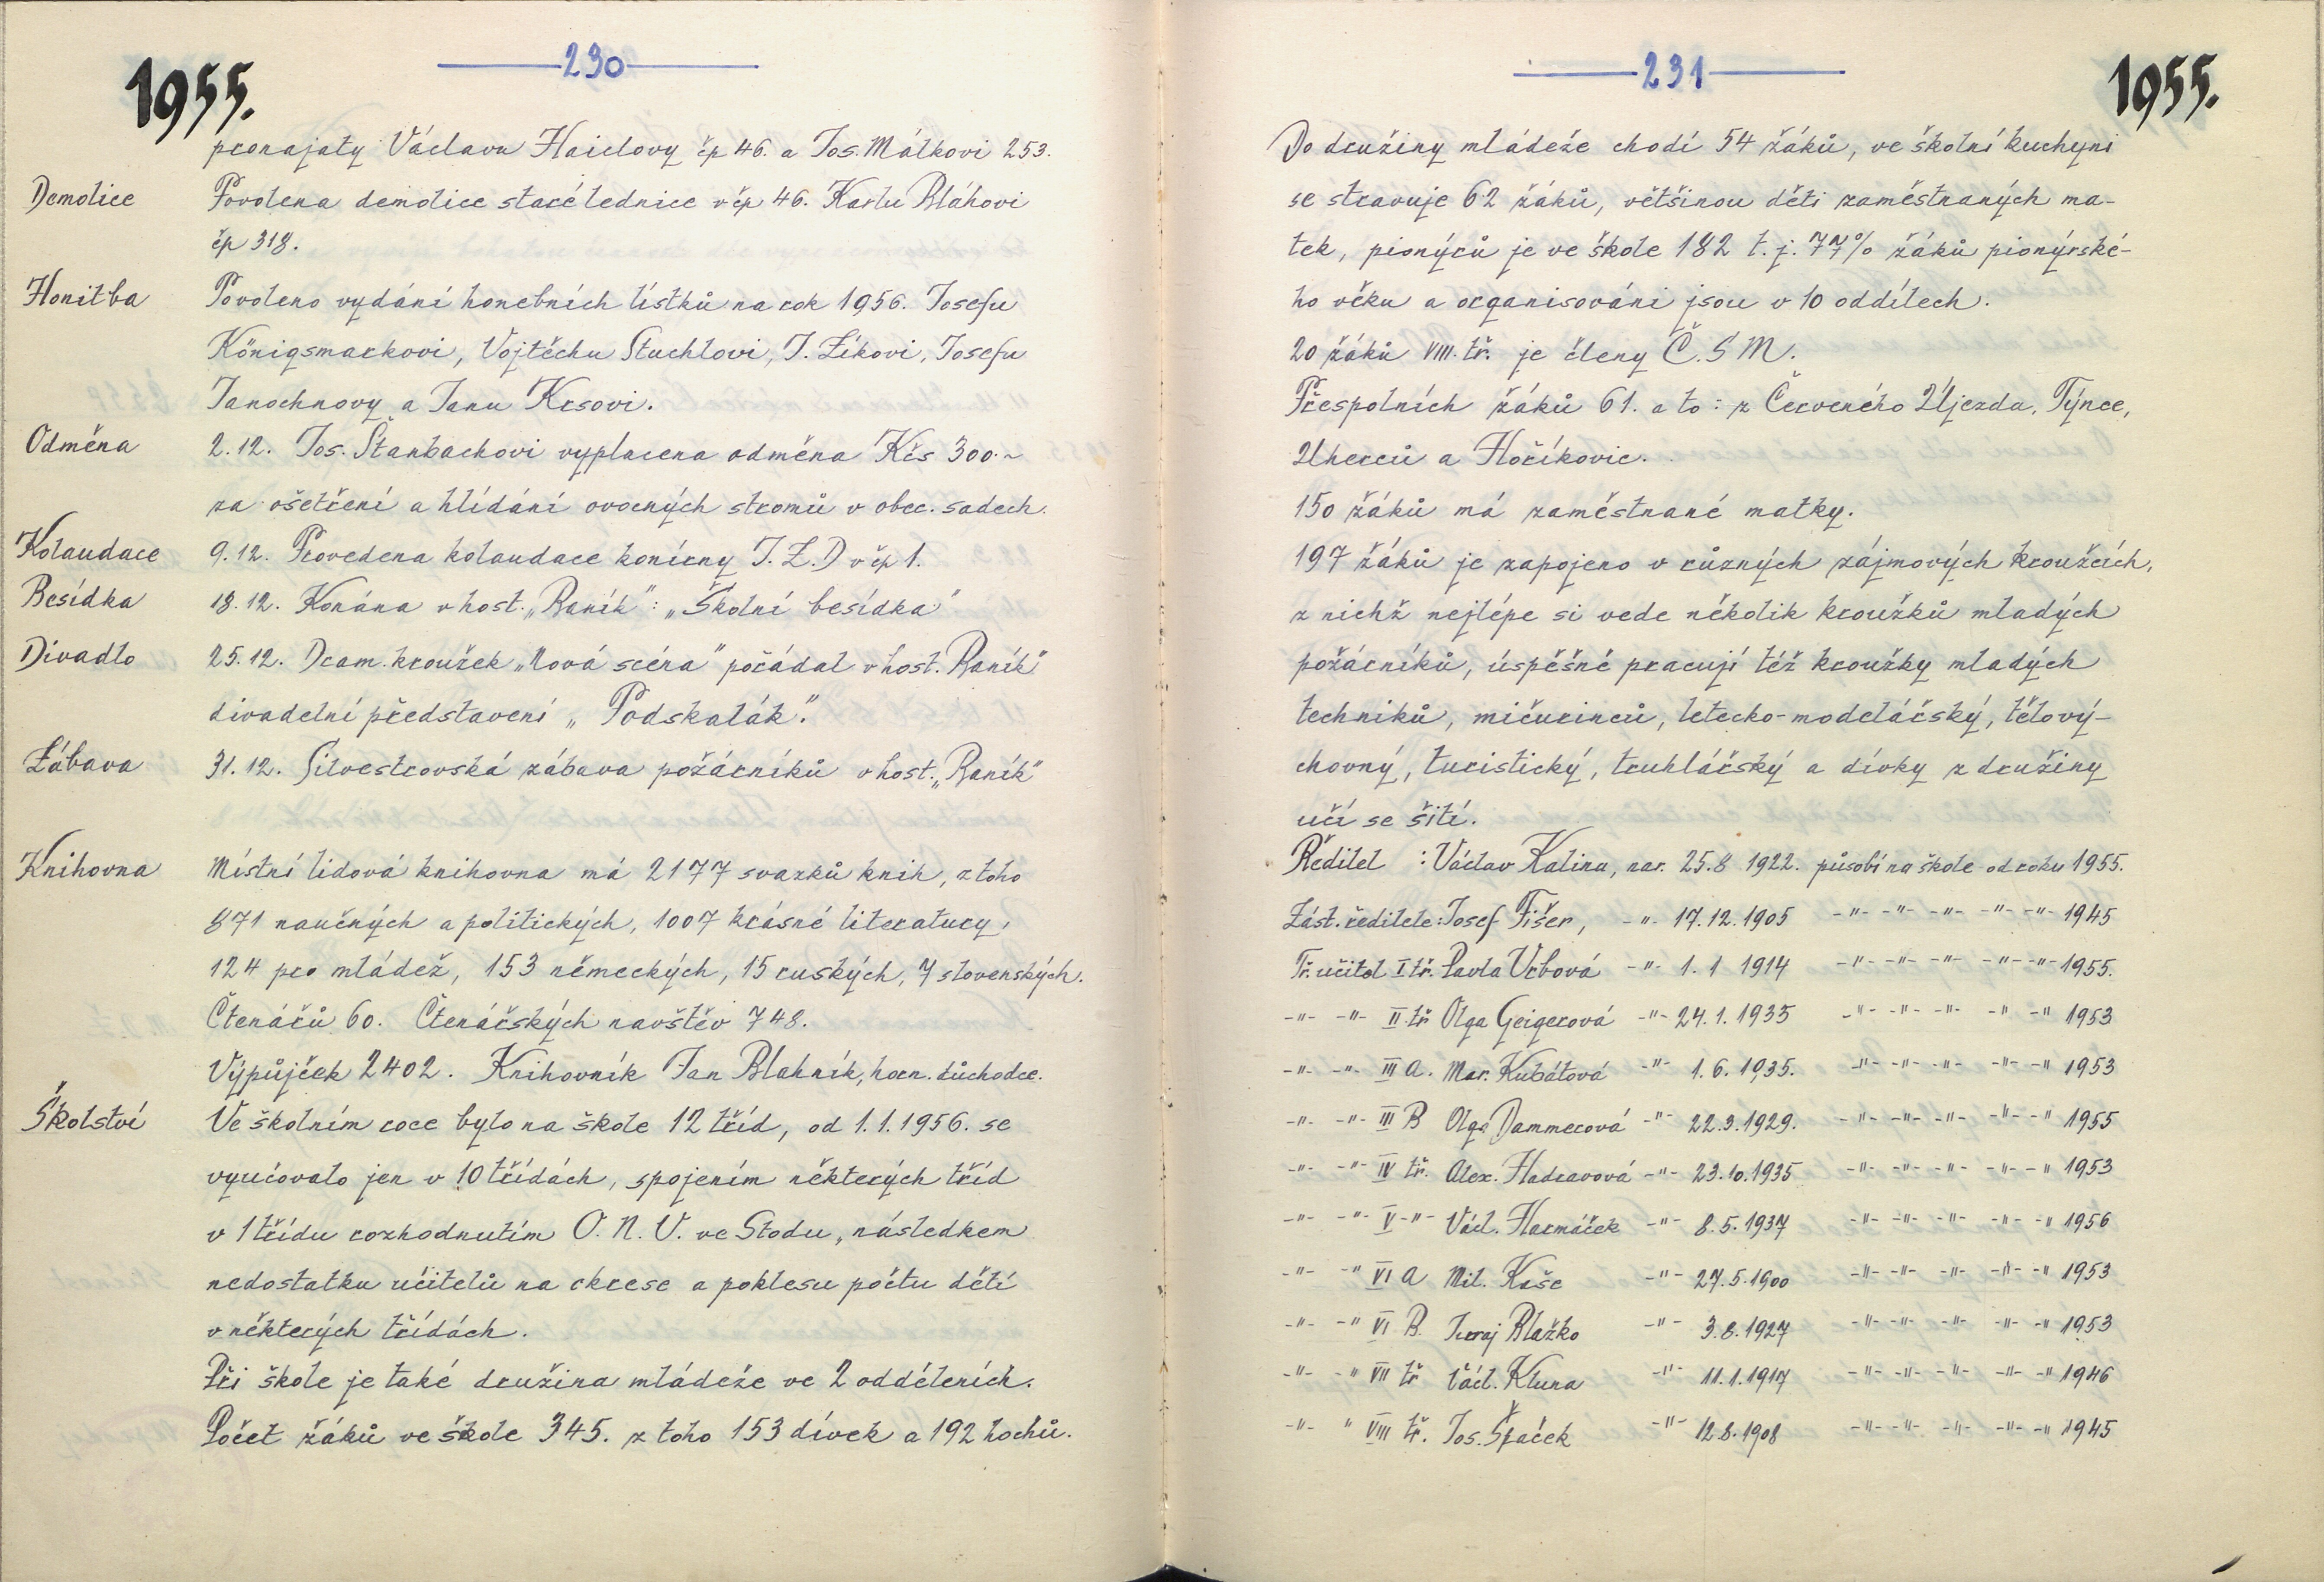 230
1955.
pronajaty Václavu Haidlovy čp 46. a Jos. Málkovi 253.
Demolice Povolena demolice staré lednice v čp 46. Karlu Bláhovi
čp 318.
Honitba Povoleno vydání honebních lístků na rok 1956. Josefu
Königsmarkovi, Vojtěchu Stuchlovi, J. Zíkovi, Josefu
Janochnovy a Janu Krsovi.
Odměna 2.12. Jos. Štanbachovi vyplacena odměna Kčs 300.~
za ošetření a hlídání ovocných stromů v obec. sadech.
Kolaudace 9.12. Provedena kolaudace konírny J.Z.D v čp 1.
Besídka 18.12. Konána v host. „Raník": „Školní besídka"
Divadlo 25.12. Dram. kroužek „Nová scéna" pořádal v host. Raník"
divadelní představení „Podskalák".
Zábava 31.12. Silvestrovská zábava požárníků v host. „Raník"
Knihovna Místní lidová knihovna má 2177 svazků knih, z toho
871 naučných a politických, 1007 krásné literatury,
124 pro mládež, 153 německých, 15 ruských, 7 slovenských.
Čtenářů 60. Čtenářských navštěv 748.
Výpůjček 2402. Knihovník Jan Blahník, horn. důchodce.
Školství Ve školním roce bylo na škole 12 tříd, od 1.1.1956. se
vyučovalo jen v 10 třídách, spojením některých tříd
v 1 třídu rozhodnutím O.N.V. ve Stodu, následkem
nedostatku učitelů na okrese a poklesu počtu dětí
v některých třídách.
Při škole je také družina mládeže ve 2 odděleních.
Počet žáků ve škole 345. z toho 153 dívek a 192 hochů.
231
1955.
Do družiny mládeže chodí 54 žáků, ve školní kuchyni
se stravuje 62 žáků, většinou děti zaměstnaných ma-
tek, pionýrů je ve škole 182 t.j. 77% žáků pionýrské-
ho věku a organisováni jsou v 10 oddílech.
20 žáků VIII. tř. je členy Č.S M.
Přespolních žáků 61. a to: z Červeného Újezda, Týnce,
Uherců a Hoříkovic.
150 žáků má zaměstnané matky.
197 žáků je zapojeno v různých zájmových kroužcích,
z nichž nejlépe si vede několik kroužků mladých
požárníků, úspěšně pracují též kroužky mladých
techniků, mičurinců, letecko-modelářský, tělový-
chovný, turistický, truhlářský a dívky z družiny
učí se šití.
Ředitel : Václav Kalina, nar. 25.8 1922. působí na škole od roku 1955.
Zást. ředitele: Josef Fišer, -"- 17.12.1905 -"- -"- -"- -"- -"- 1945
Tř. učitel I tř. Pavla Vrbová -"- 1.1 1914 -"- -"- -"- -"- -"- 1955.
-"- -"- II. tř Olga Geigerová -"- 24.1.1935 -"- -"- -"- -"- -" 1953
-"- -"- III A. Mar. Kubátová -"- 1.6.1935. -"- -"- -"- -"- -" 1953
-"- -"- III B Olga Dammerová -"- 22.3.1929. -"- -"- -"- -"- -" 1955
-"- -"- IV tř. Alex. Hadravová -"- 23.10.1935 -"- -"- -"- -"- -" 1953
-"- -"- V -"- Václ. Harmáček -"- 8.5.1937 -"- -"- -"- -"- -" 1956
-"- -" VI A Mil. Kaše -"- 27.5.1900 -"- -"- -"- -"- -" 1953
-"- -" VI B. Juraj Blažko -"- 3.8.1927 -"- -"- -"- -"- -" 1953
-"- -" VII tř Václ. Kluna -"- 11.1.1917 -"- -"- -"- -"- -" 1946
-"- " VIII tř. Jos. Špaček -"- 12.8.1908 -"- -"- -"- -"- -" 1945